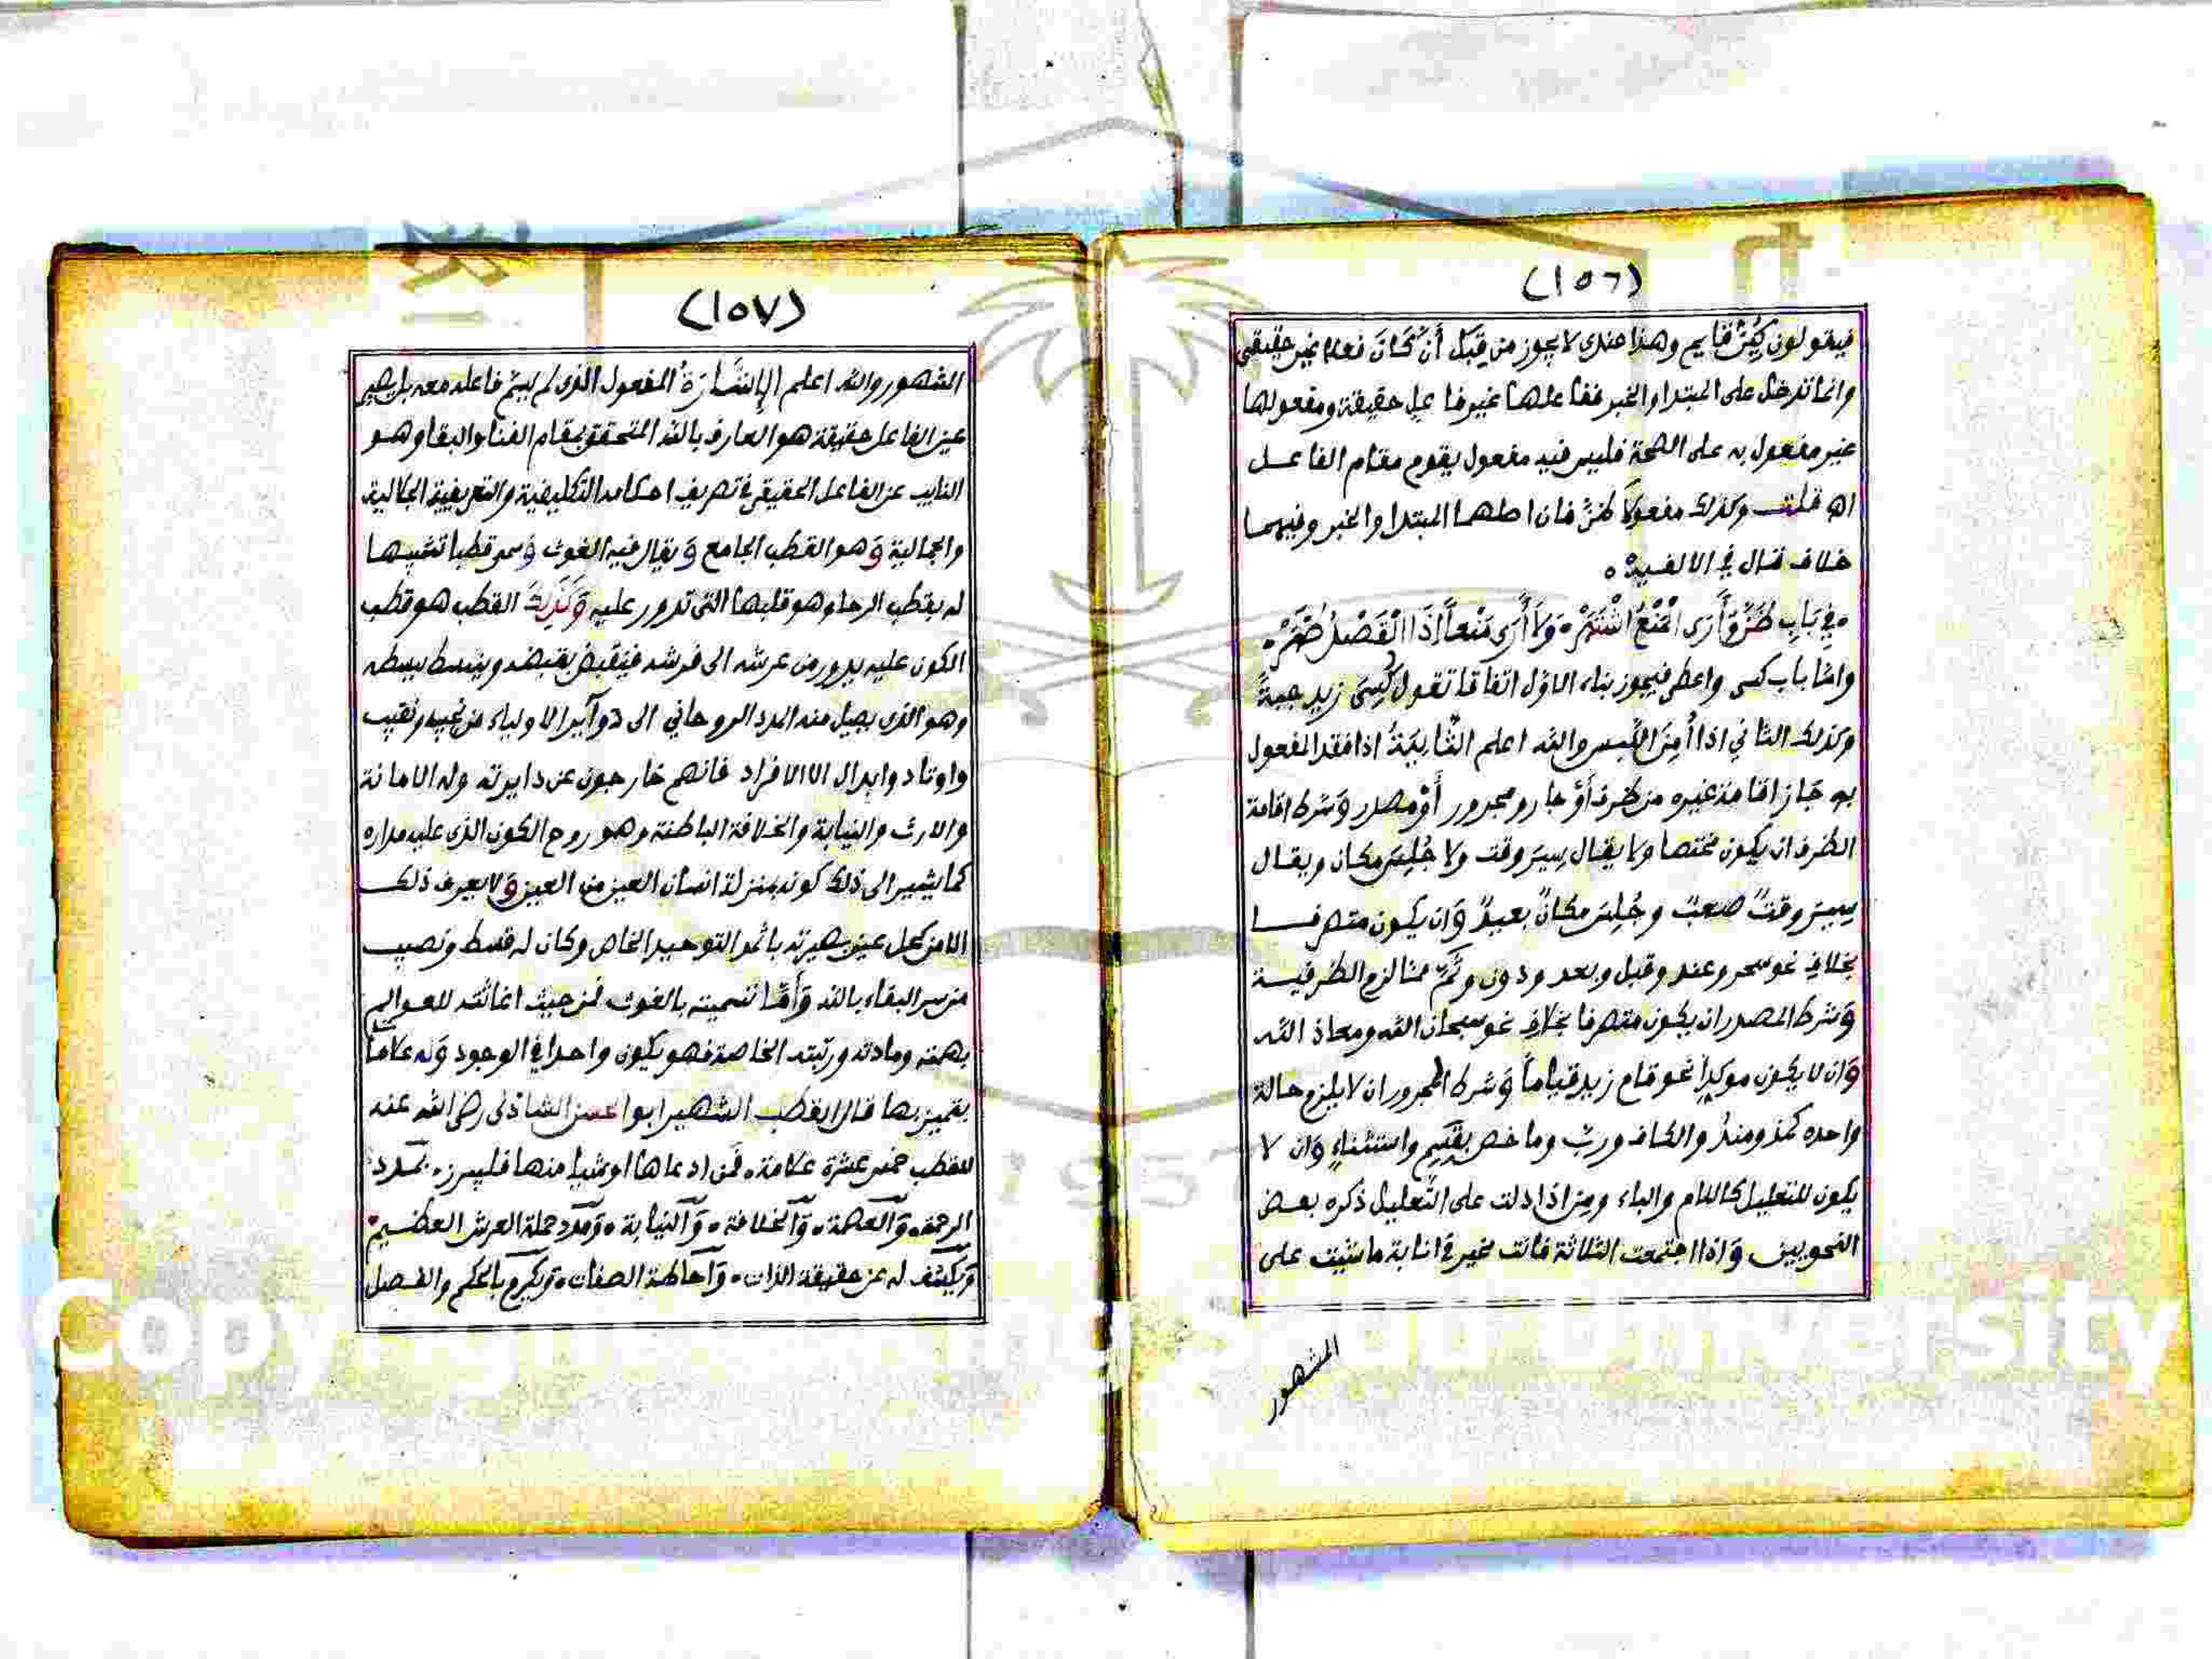 (١٥٦)
فيقولون كِينَ قايم وهذا عندى لا يجوز من قِبَل أَنْ كَانَ فعل غير حقيقى
وانما تدخل على المبتدا والخبر ففاعلها غير فاعل حقيقة ومفعولها
غير مفعول به على الصحة فليس فيه مفعول يقوم مقام الفاعل
اه قلت وكذلك مفعولا ظن فان اصلهما المبتدا والخبر وفيهما
خلاف قال في الالفية ه
في بَابِ ظَنَّ وَأَرَى المَنْعُ اشْتَهَرْ ٠ وَلاَ أَرَى مَنْعاً إذَا الْقَصْدُ ظَهَرْ ٠
واما باب كسى واعطى فيجوز بناء الاول اتفاقا تقول كُسِىَ زيد جبةً
وكذلك الثاني اذا أُمِنَ اللَّبس والله اعلم الثَّانِيَةُ اذا فقد المفعول
به جَاز اقامة غيره من ظرف أَوْ جار ومجرور أَوْ مصدر وَشرط اقامة
الظرف ان يكون مختصا ولا يقال سِيرَ وقت ولا جُلِسَ مكان ويقال
سِيرَ وقتٌ صعبٌ وجُلِسَ مكانٌ بعيدٌ وَان يكون متصرفا
بخلاف نحو سحر وعند وقبل وبعد ودون وثَمَّ مما لزم الظرفية
وَشرط المصدر ان يكون متصرفا بخلاف نحو سبحان الله ومعاذ الله
وَان لا يكون موكدا نحو قام زيد قياماً وَشرط المجرور ان لا يلزم حالة
واحده كمذ ومنذُ والكاف وربّ وما خص بقسم واستثناءٍ وَان لا
يكون للتعليل كاللام والباء ومِن اذا دلت على التَّعليل ذكره بعض
النحويين وَاذا اجتمعت الثلاثة فانت مخير في انابة ما شئت على
المشهور
(١٥٧)
المشهور والله اعلم الإِشَارَةُ المفعول الذى لم يسم فاعله معه بل يصير
عين الفاعل حقيقة هو العارف بالله المتحقق بمقام الفنا والبقا وهو
النايب عن الفاعل الحقيقى في تصريف احكامه التكليفية والتعريفية الجلالية
والجمالية وَهو القطب الجامع وَيقال فيه الغوث وَسمى قطبا تشبيها
له بقطب الرحا وهو قلبها التى تدور عليه وَكَذَلِكَ القطب هو قطب
الكون عليه يدور من عرشه الى فرشه فينقبض بقبضه وينبسط ببسطه
وهو الذى يصل منه المدد الروحاني الى دوآير الاولياء من نجيب ونقيب
واوتاد وابدال الا الافراد فانهم خارجون عن دايرته وله الامانة
والارث والنيابة والخلافة الباطنة وهو روح الكون الذى عليه مداره
كما يشير الى ذلك كونه بمنزلة انسان العين من العين وَلا يعرف ذلك
الا من كحل عين بصيرته باثمد التوحيد الخاص وكان له قسط ونصيب
من سر البقاء بالله وَأَمَّا تسميته بالغوث فمن حيث اغاثته للعوالم
بهمته ومادته ورتبته الخاصة فهو يكون واحدا في الوجود وَله علامات
يتميز بها قال القطب الشهير ابو الحسن الشاذلى رضى الله عنه
للقطب خمس عشرة علامة ٠ فمن ادعاها او شيا منها فليبرز ٠ بمدد
الرحمة ٠ وَالعصمة ٠ وَالخلافة ٠ وَالنيابة ٠ وَمدد حملة العرش العظيم ٠
وَيكشف له عن حقيقة الذات ٠ وَاحاطة الصفات ٠ وَيكرم بالحكم والفصل
Copyright © King Saud University
1957